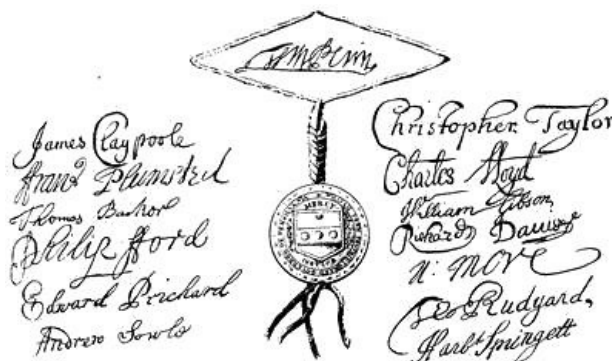 Wm Penn
James Claypoole
ffran^d Plumsted
Thomas Barker
Philip fford
Edward Prichard
Andrew Sowle
Christopher Taylor
Charles Lloyd
William Gibson
Richard Davies
N: More
Tho Rudyard,
Harb^t Springett